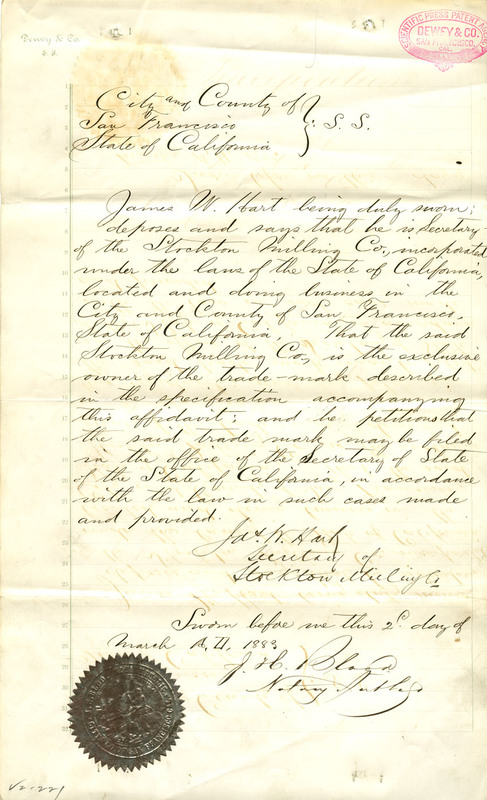 Dewey & Co.
S. F.
SCIENTIFIC PRESS PATENT AGENCY
DEWEY & CO.
SAN FRANCISCO,
CAL.
City and County of
San Francisco
State of California
} S. S.
James W. Hart being duly sworn;
deposes and says that he is Secretary
of the Stockton Milling Co., incorporated
under the laws of the State of California,
located and doing business in the
City and County of San Francisco,
State of California, That the said
Stockton Milling Co., is the exclusive
owner of the trade-mark described
in the specification accompanying
this affidavit; and he petitions that
the said trade mark may be filed
in the office of the Secretary of State
of the State of California, in accordance
with the law in such cases made
and provided.
Jas. W. Hart
Secretary of
Stockton Milling Co
Sworn before me this 2d. day of
March A. D. 1883
J. H. Blood
Notary Public